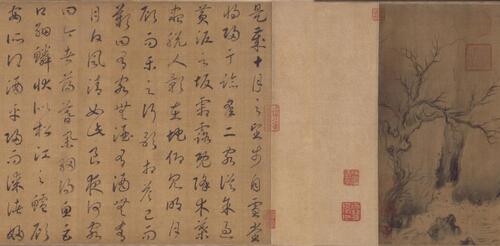 是歲十月之望步自雪堂
將歸于臨皋二客從予過
黃泥之坂霜露既降木葉
盡脫人影在地仰見明月
顧而樂之行歌相答已而
歎曰有客無酒有酒無肴
月白風清如此良夜何客
曰今者薄暮舉網得魚巨
口細鱗狀似松江之鱸顧
安所得酒乎歸而謀諸婦